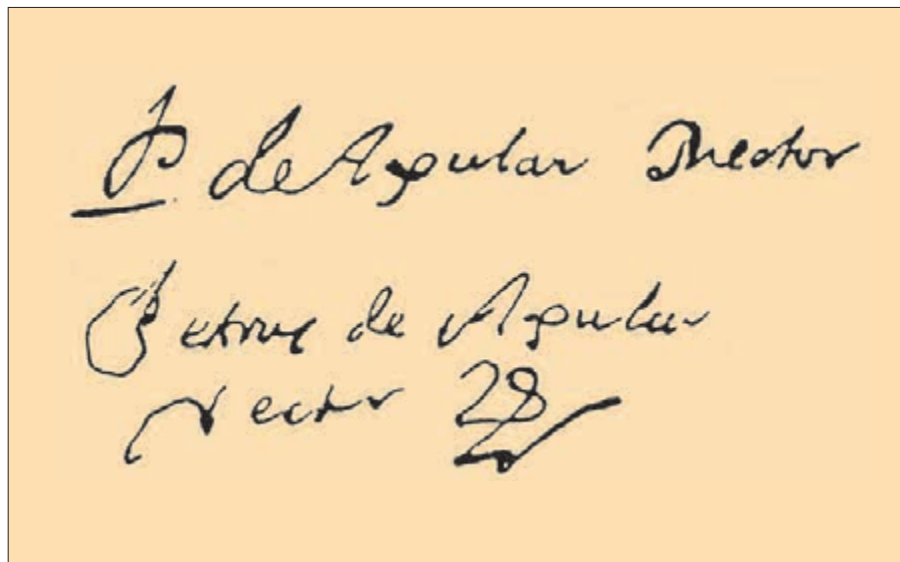 P de Agular Rector
Petrus de Agular
rector 28